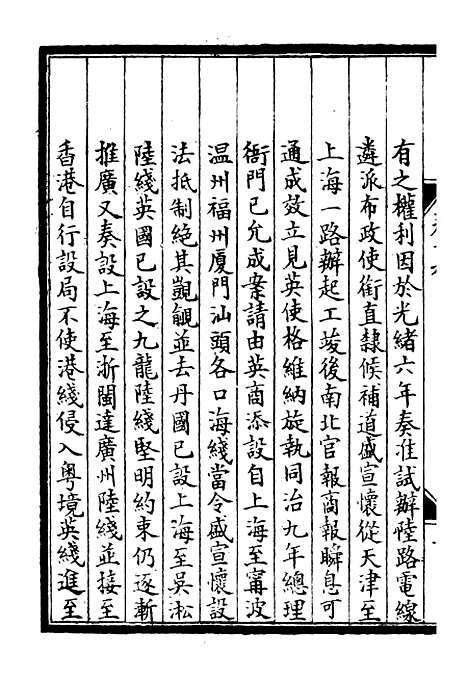 有之權利因於光緒六年奏准試辦陸路電線
遴派布政使銜直隸候補道盛宣懷從天津至
上海一路辦起工竣後南北官報商報瞬息可
通成效立見英使格維納旋執同治九年總理
衙門已允成案請由英商添設自上海至甯波
温州福州厦門汕頭各口海綫當令盛宣懷設
法抵制絶其覬覦並去丹國已設上海至吳淞
陸綫英國已設之九龍陸綫堅明約束仍逐漸
推廣又奏設上海至浙閩達廣州陸綫並接至
香港自行設局不使港綫侵入粤境英綫進至